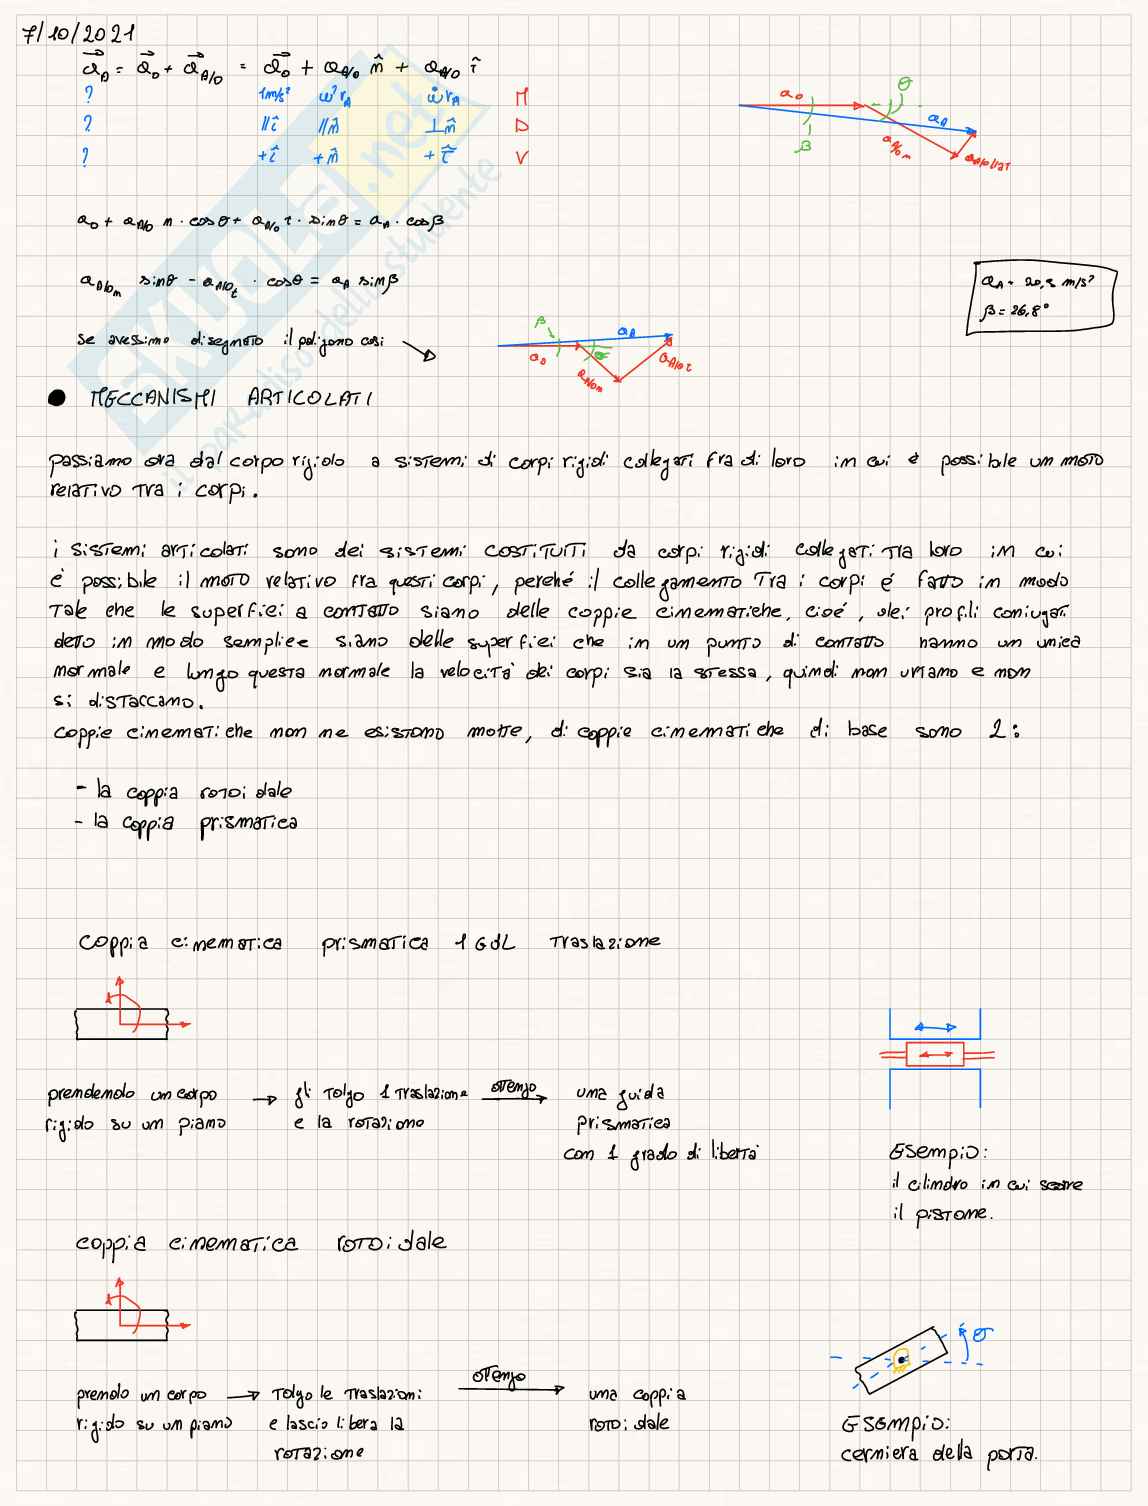 7/10/2021
a_A = a_O + a_A/O = a_O + a_A/O n̂ + a_A/O τ̂
? 1m/s² ω²r_A ω̇ r_A M
? //î //n̂ ⊥n̂ D
? +î +n̂ +τ̂ V
a_O a_A θ β a_A/O n a_A/O t
a_O + a_A/O n · cosθ + a_A/O t · sinθ = a_A · cosβ
a_A/O n sinθ - a_A/O t · cosθ = a_A sinβ
a_A = 20,5 m/s²
β = 26,8°
se avessimo disegnato il poligono così
β a_A a_O a_A/O n a_A/O t
● MECCANISMI ARTICOLATI
passiamo ora dal corpo rigido a sistemi di corpi rigidi collegati fra di loro in cui è possibile un moto
relativo tra i corpi.
i sistemi articolati sono dei sistemi costituiti da corpi rigidi collegati tra loro in cui
è possibile il moto relativo fra questi corpi, perché il collegamento tra i corpi é fatto in modo
tale che le superfici a contatto siano delle coppie cinematiche, cioé, dei profili coniugati
detto in modo semplice siano delle superfici che in un punto di contatto hanno un unica
normale e lungo questa normale la velocità dei corpi sia la stessa, quindi non urtano e non
si distaccano.
coppie cinematiche non ne esistono molte, di coppie cinematiche di base sono 2:
- la coppia rotoidale
- la coppia prismatica
coppia cinematica prismatica 1 GdL traslazione
prendendo un corpo → gli tolgo 1 traslazione ottengo → una guida
rigido su un piano e la rotazione prismatica
con 1 grado di libertà
Esempio:
il cilindro in cui scorre
il pistone.
coppia cinematica rotoidale
θ
prendo un corpo → tolgo le traslazioni ottengo → una coppia
rigido su un piano e lascio libera la rotoidale
rotazione
ESEMPIO:
cerniera della porta.
SKUOLA.net
il paradiso dello studente